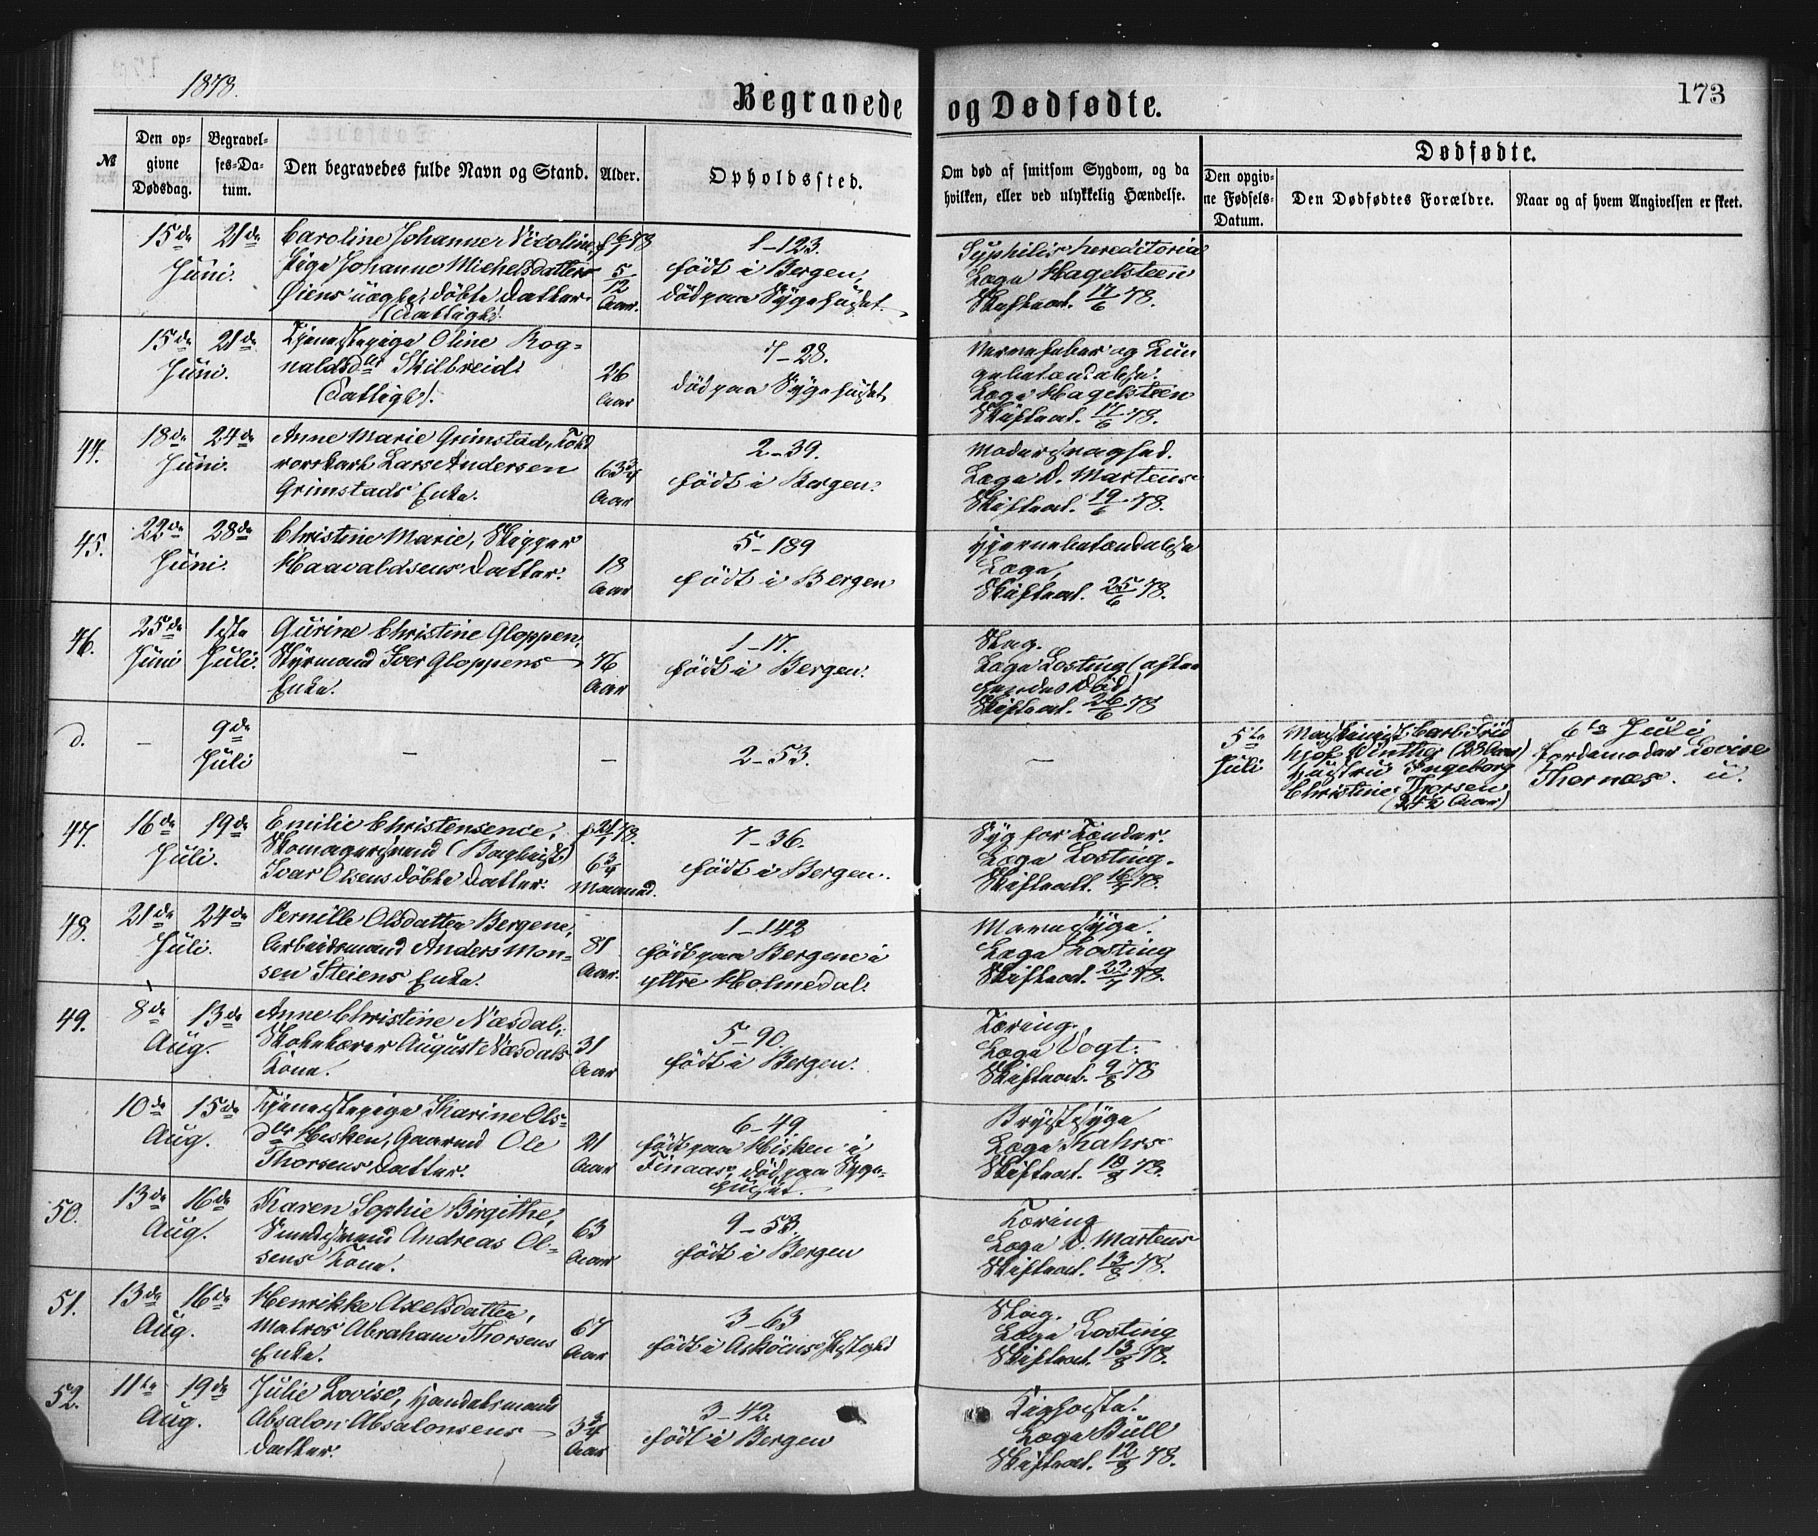 1878.
Begravede og Dødfødte.
173
№
Den opgivne Dødsdag.
Begravelses-Datum.
Den begravedes fulde Navn og Stand.
Alder.
Opholdssted.
Om død af smitsom Sygdom, og da hvilken, eller ved ulykkelig Hændelse.
Dødfødte.
Den opgivne Fødsels-Datum.
Den Dødfødtes Forældre.
Naar og af hvem Angivelsen er skeet.
15de Juni.
21de
Caroline Johanne Nicoline,
Pige Johanne Michelsdatter
Øiens uægte, døbte Datter.
(Fattiglig).
5/12 Aar.
1-123.
født i Bergen,
død paa Sygehuset.
Syphilis hereditoria
Læge Hagelsteen
Skifteat. 17/6 78.
15de Juni.
21de
Tjenestepige Oline Rog-
naldsdtr Skilbreid.
(Fattiglig).
26 Aar
7-28.
død paa Sygehuset
Nervefeber og Lun-
gebetændelse.
Læge Hagelsteen
Skifteat. 17/6 78.
44.
18de Juni.
24de
Anne Marie Grimstad,
Lars Andersen
Grimstads Enke.
63 3/4 Aar
2-39.
født i Bergen.
Modersvaghed.
Læge D. Martens
Skifteat. 19/6 78.
45.
22de Juni.
28de
Christine Marie, Skipper
Haavaldsens Datter.
18 Aar
5-189
født i Bergen
Hjernebetændelse
Læge,
Skifteat. 25/6 78.
46.
25de Juni
1ste Juli.
Gurine Christine Gloppen,
Styrmand Iver Gloppens
Enke.
76 Aar
1-17.
født i Bergen.
Slag.
Læge Losting (efter
hendes Død)
Skifteat. 26/6 78
d.
-
9de Juli
-
-
2-53.
-
5te Juli
Maskinist Carl Frid-
hjof Winther (23 Aar)
Hustru Ingeborg
Christine Thorsen
6te Juli
Jordemoder Lovise
Thornæs. u.
47.
16de Juli.
19de
Emilie Christensence,
Skomagersvend
Ivar Olsens døbte Datter.
f 21/1 78.
6 3/4 Maaned.
7-36.
født i Bergen.
Syg for Tænder.
Læge Losting.
Skifteatt. 16/7 78.
48.
21de Juli.
24de
Pernille Olsdatter Bergene,
Arbeidsmand Anders Mon-
sen Steiens Enke.
81 Aar.
1-142
født paa Bergene i
yttre Holmedal.
Mavesyge.
Læge Losting
Skifteat. 22/7 78.
49.
8de Aug.
13de
Anne Christine Næsdal,
August Næsdals
Kone.
31 Aar
5-90.
født i Bergen.
Tæring.
Læge Vogt.
Skifteat. 9/8 78
10de Aug.
15de
Tjenestepige Karine Ols-
dtr Hisken, Gaarmd Ole
Thorsens Datter.
21 Aar
6-49
født paa Hisken i
Finaas, død paa Syge-
huset.
Brystsyge
Læge Kahrs
Skifteat. 10/8 78.
50.
13de Aug.
16de
Karen Sophie Birgithe,
Andreas Ol-
sens Kone.
63 Aar
9-53.
født i Bergen
Tæring
Læge D. Martens
Skifteat. 13/8 78.
51.
13de Aug.
16de
Henrikke Axelsdatter,
Matros Abraham Thorsens
Enke.
67 Aar
3-63
født i Askøens Præstegjeld
Slag.
Læge Losting
Skifteat. 13/8 78.
52.
11te Aug.
19de
Julie Lovise, Handelsmand
Absalon Absalonsens
Datter.
3 3/4 Aar
3-42.
født i Bergen
Kighoste.
Læge Bull
Skifteat. 12/8 78.